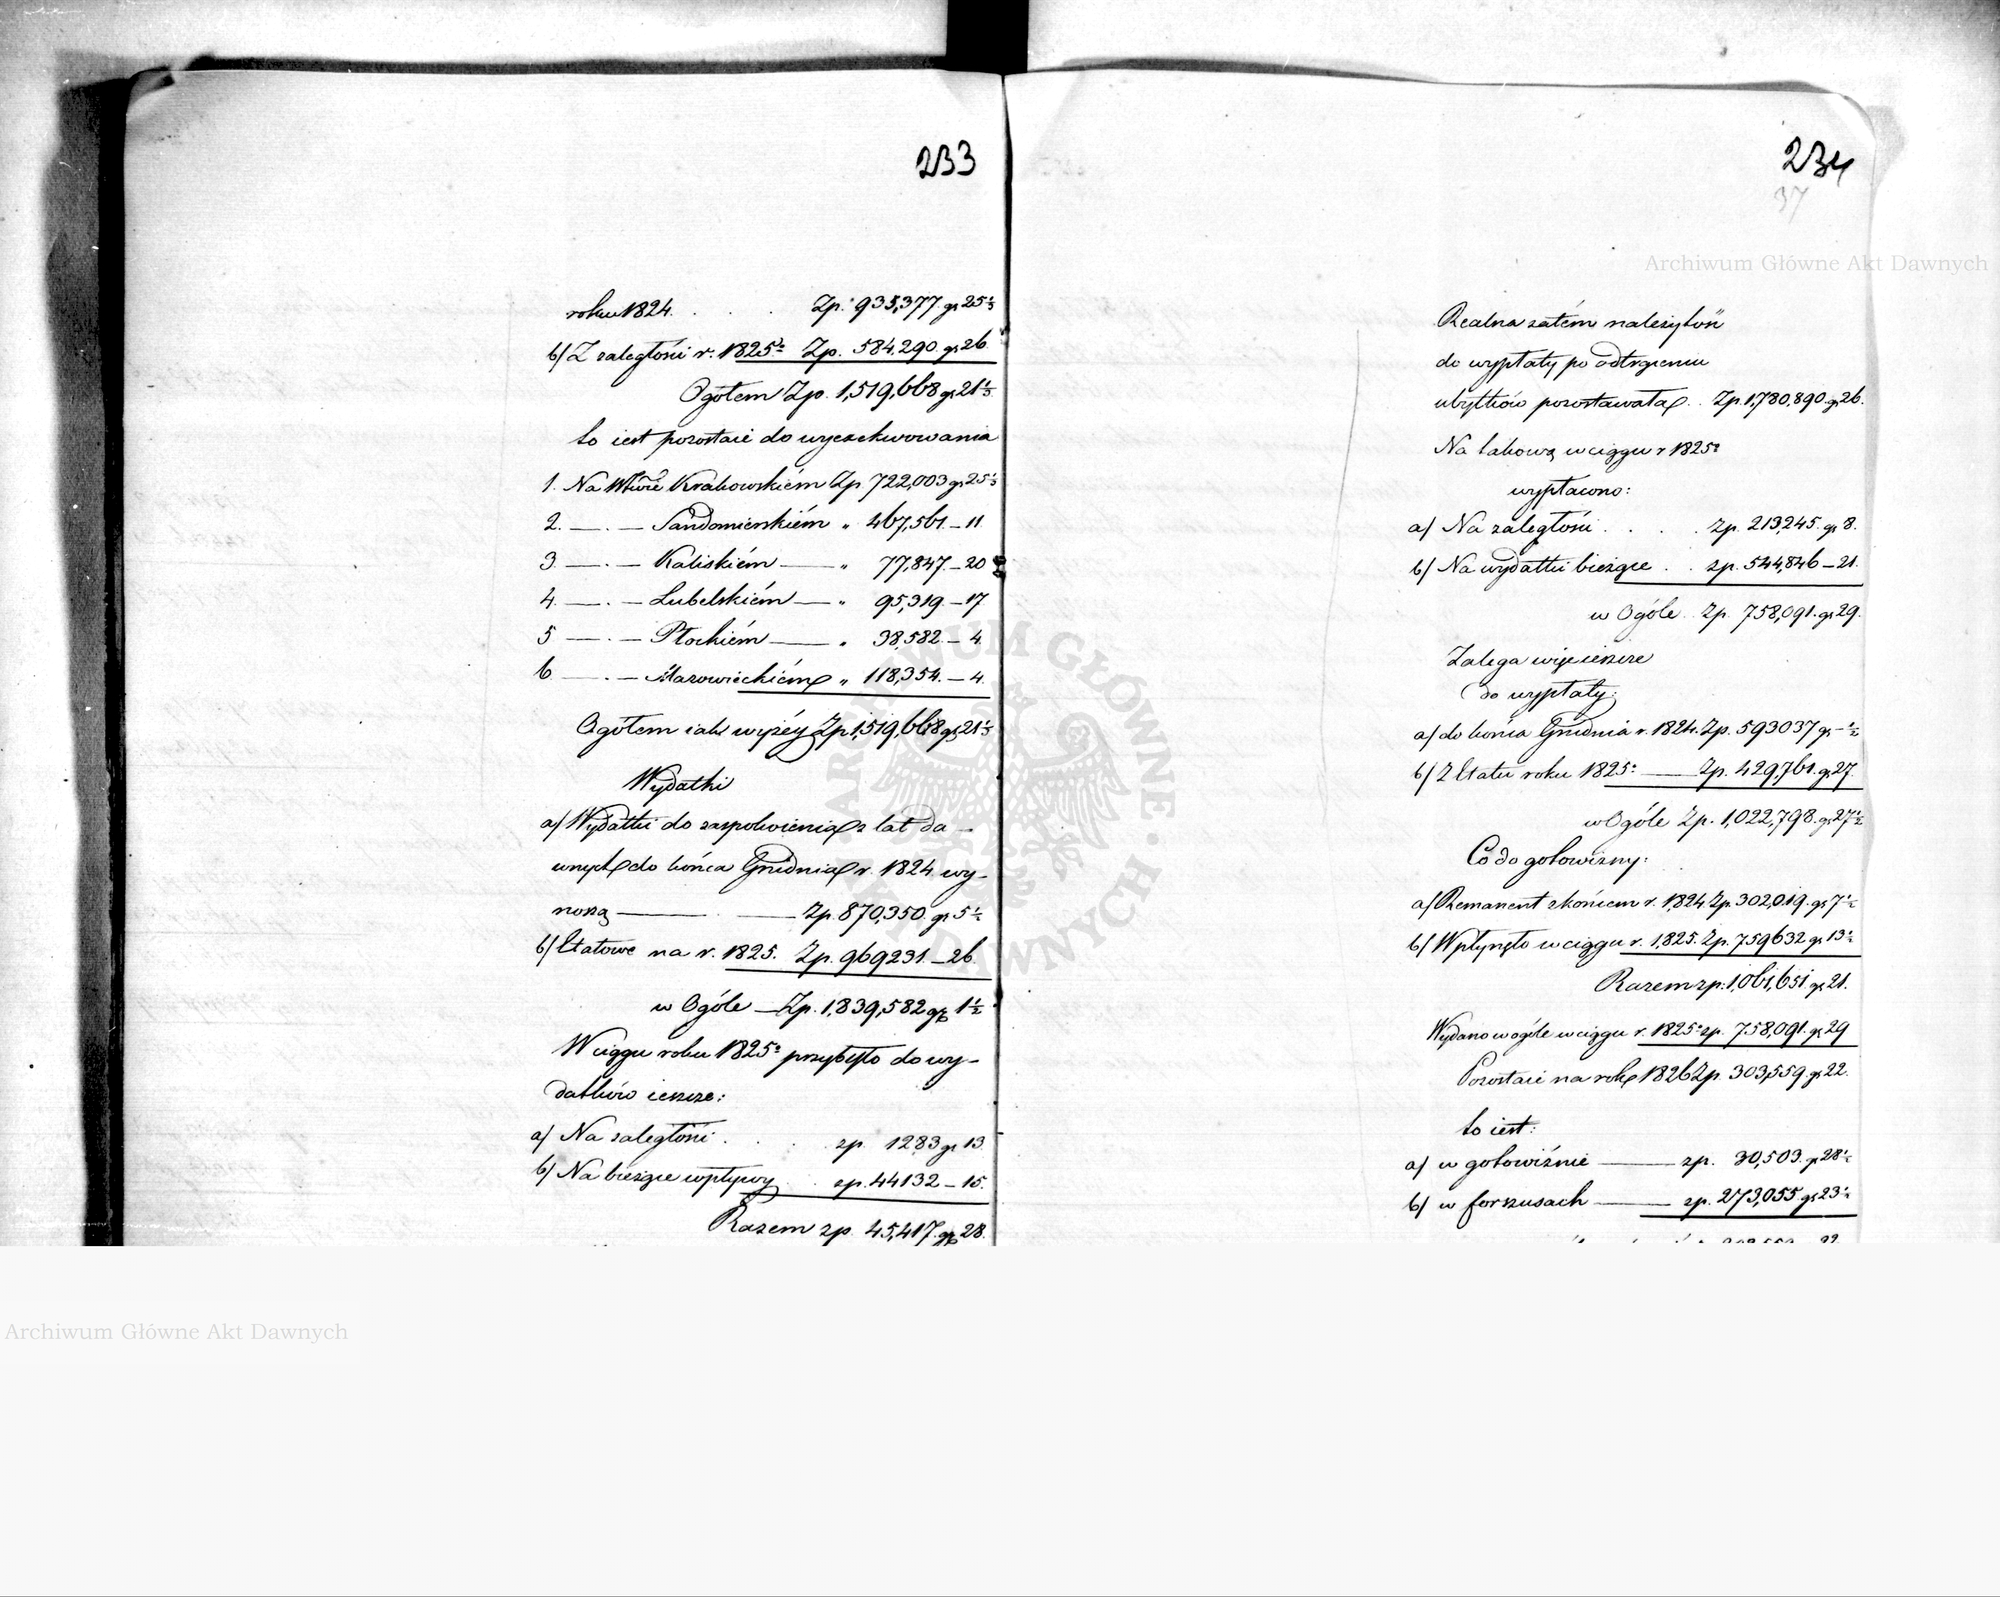 233
roku 1824. . . . Zp. 935,377 gr 25⅓
b/ Z zaległości r. 1825º Zp. 584,290 gr 26
Ogółem Zp. 1,519,668 gr 21⅓
to iest pozostaie do wyexekwowania
1. Na Wdzwie Krakowskiém Zp. 722,003 gr 25⅓
2. —.— Sandomierskiém „ 467,561 – 11
3 —.— Kaliskiém — „ 77,847 – 20
4. —.— Lubelskiém — „ 95,319. – 17
5 —.— Płockiém — „ 38,582. – 4.
6 —.— Mazowieckiém „ 118,354. – 4.
Ogółem iak wyżéy Zp 1,519,668 gr 21⅓
Wydatki
a/ Wydatki do zaspokoienia z lat da-
wnych do końca Grudnia r. 1824 wy-
noszą — — Zp. 870,350. gr 5½
b/ Etatowe na r. 1825. Zp. 969231. – 26.
w Ogóle — Zp. 1,839,582 gr 1½
W ciągu roku 1825º przybyło do wy-
datków ieszcze:
a/ Na zaległości . . . zp. 1283 gr 13
b/ Na bieżące wpływy . . zp. 44132 – 15.
Razem zp. 45,417. gr 28.
234
37
Realna zatém należytość
do wypłaty po odtrąceniu
ubytków pozostawała . . Zp. 1,780,890 gr 26.
Na takową w ciągu r 1825º
wypłacono:
a/ Na zaległości . . . . zp. 213,245. gr 8.
b/ Na wydatki bieżące . . zp. 544,846 – 21.
w Ogóle . Zp. 758,091. gr 29.
Zalega więc ieszcze
do wypłaty:
a/ do końca Grudnia r. 1824. Zp. 593037 gr – ½
b/ Z Etatu roku 1825º — Zp. 429,761. gr 27.
w Ogóle Zp. 1,022,798. gr 27½
Co do gotowizny:
a/ Remanent z końcem r. 1824. Zp. 302,019. gr 7½
b/ Wpłynęło w ciągu r. 1825. Zp. 759632 gr 13½
Razem zp: 1,061,651 gr 21.
Wydano w ogóle w ciągu r. 1825º zp. 758,091. gr 29
Pozostaie na rok 1826 Zp. 303,559. gr 22.
to iest:
a/ w gotowiźnie — zp. 30,503. gr 28½
b/ w forszusach — zp. 273,055. gr 23½
Archiwum Główne Akt Dawnych
Archiwum Główne Akt Dawnych
ARCHIWUM GŁÓWNE AKT DAWNYCH